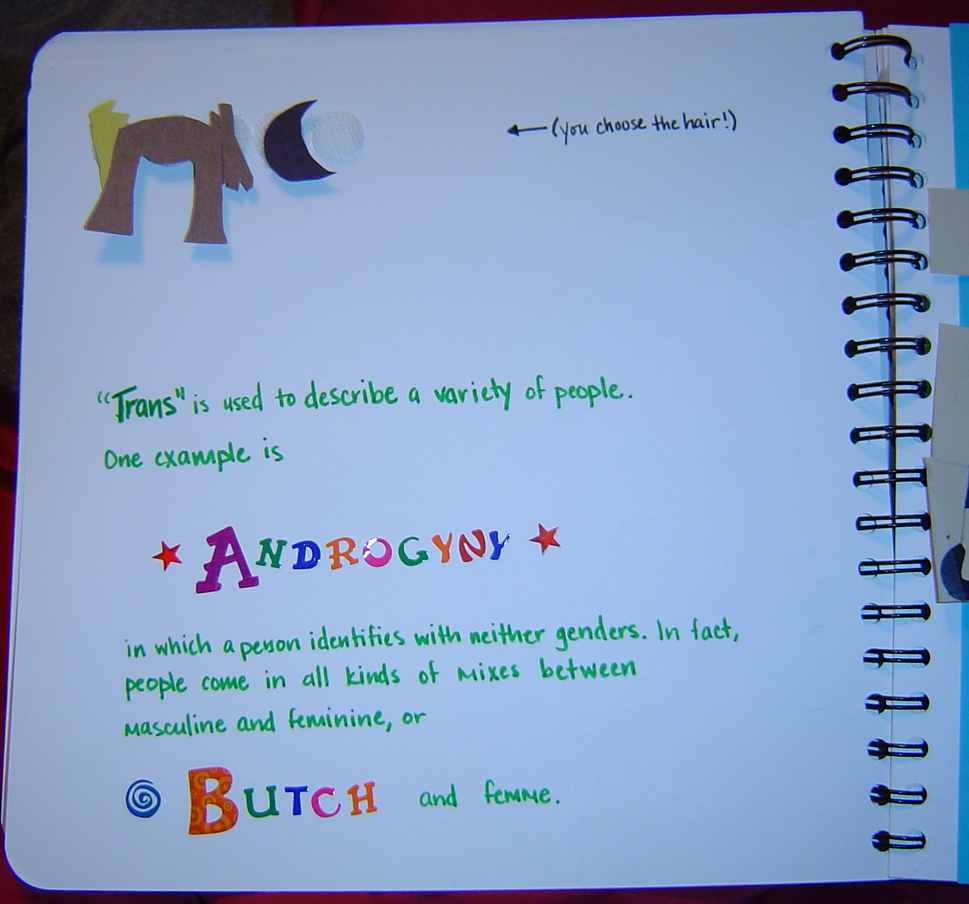 (you choose the hair!)
"Trans" is used to describe a variety of people.
One example is
ANDROGYNY
in which a person identifies with neither genders. In fact,
people come in all kinds of mixes between
masculine and feminine, or
BUTCH and femme.